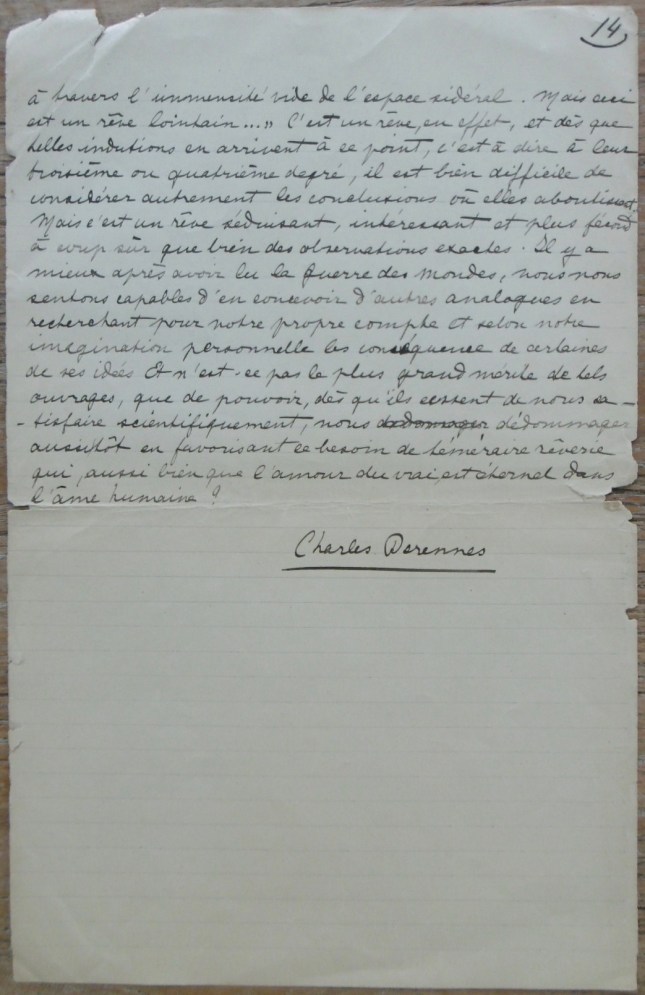 14
à travers l'immensité vide de l'espace sidéral. Mais ceci
est un rêve lointain...» C'est un rêve, en effet, et dès que
telles indutions en arrivent à ce point, c'est à dire à leur
troisième ou quatrième degré, il est bien difficile de
considérer autrement les conclusions où elles aboutissent.
Mais c'est un rêve séduisant, intéressant et plus fécond
à coup sûr que bien des observations exactes. Il y a
mieux après avoir lu la Guerre des Mondes, nous nous
sentons capables d'en concevoir d'autres analogues en
recherchant pour notre propre compte et selon notre
imagination personnelle les conséquence de certaines
de ses idées Et n'est-ce pas le plus grand mérite de tels
ouvrages, que de pouvoir, dès qu'ils cessent de nous sa-
-tisfaire scientifiquement, nous dédommager
aussitôt en favorisant ce besoin de téméraire rêverie
qui, aussi bien que l'amour du vrai est éternel dans
l'âme humaine?
Charles Derennes